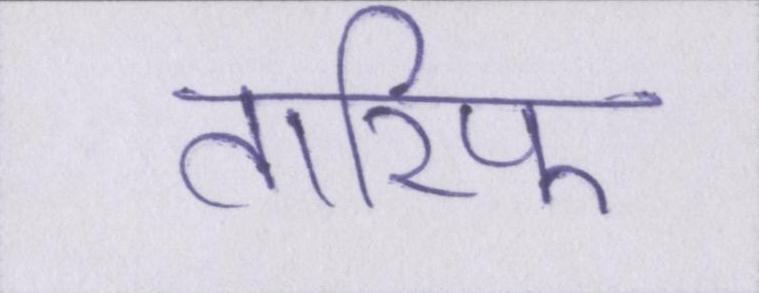 तारिफ